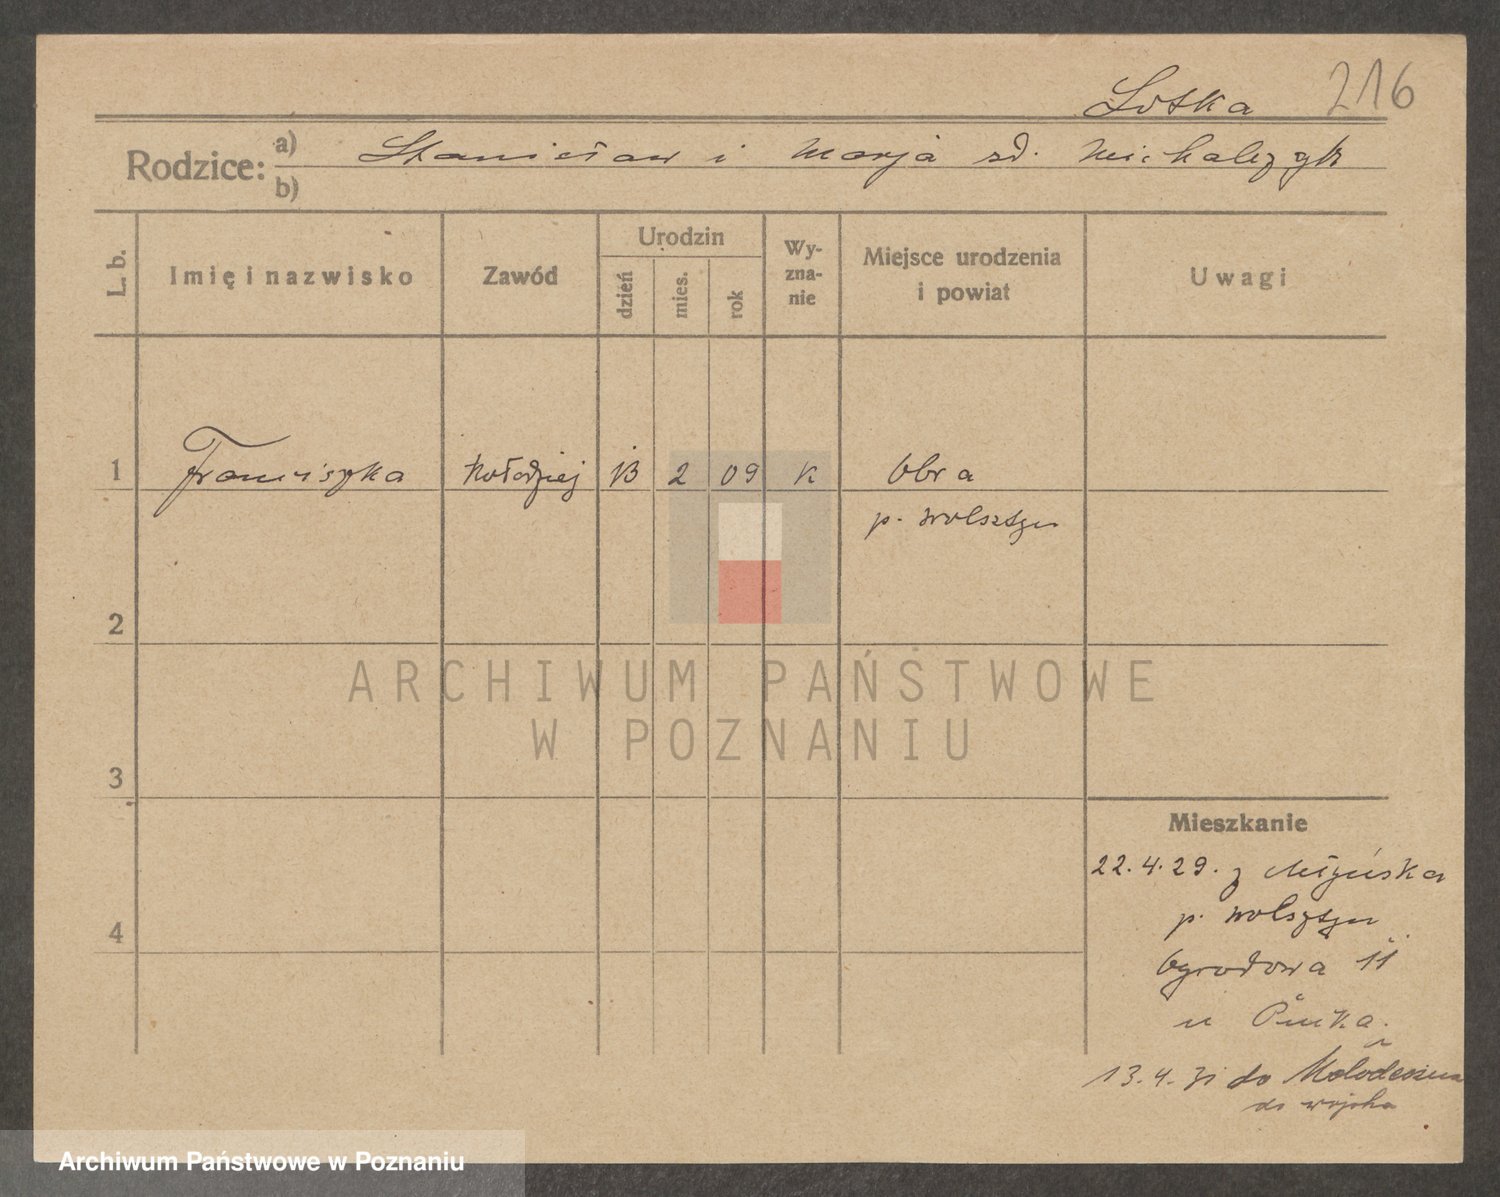 Lotka 216
Rodzice: a) Stanisław i Marja zd. Michalczyk
b)
L. b.
Imię i nazwisko
Zawód
Urodzin
dzień
mies.
rok
Wy-
zna-
nie
Miejsce urodzenia
i powiat
Uwagi
1 Franciszka Kołodziej 13 2 09 K Obra
p. Wolsztyn
2
3
4
ARCHIWUM PAŃSTWOWE
W POZNANIU
Mieszkanie
22.4.29. z
p. Wolsztyn
Ogrodowa 11
u
13.4.31 do Mołodeczna
do wojska
Archiwum Państwowe w Poznaniu